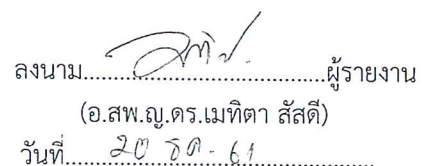 ลงนาม..............................ผู้รายงาน
(อ.สพ.ญ.ดร.เมทิตา สัสดี)
วันที่.....20 ธค. 61.....................